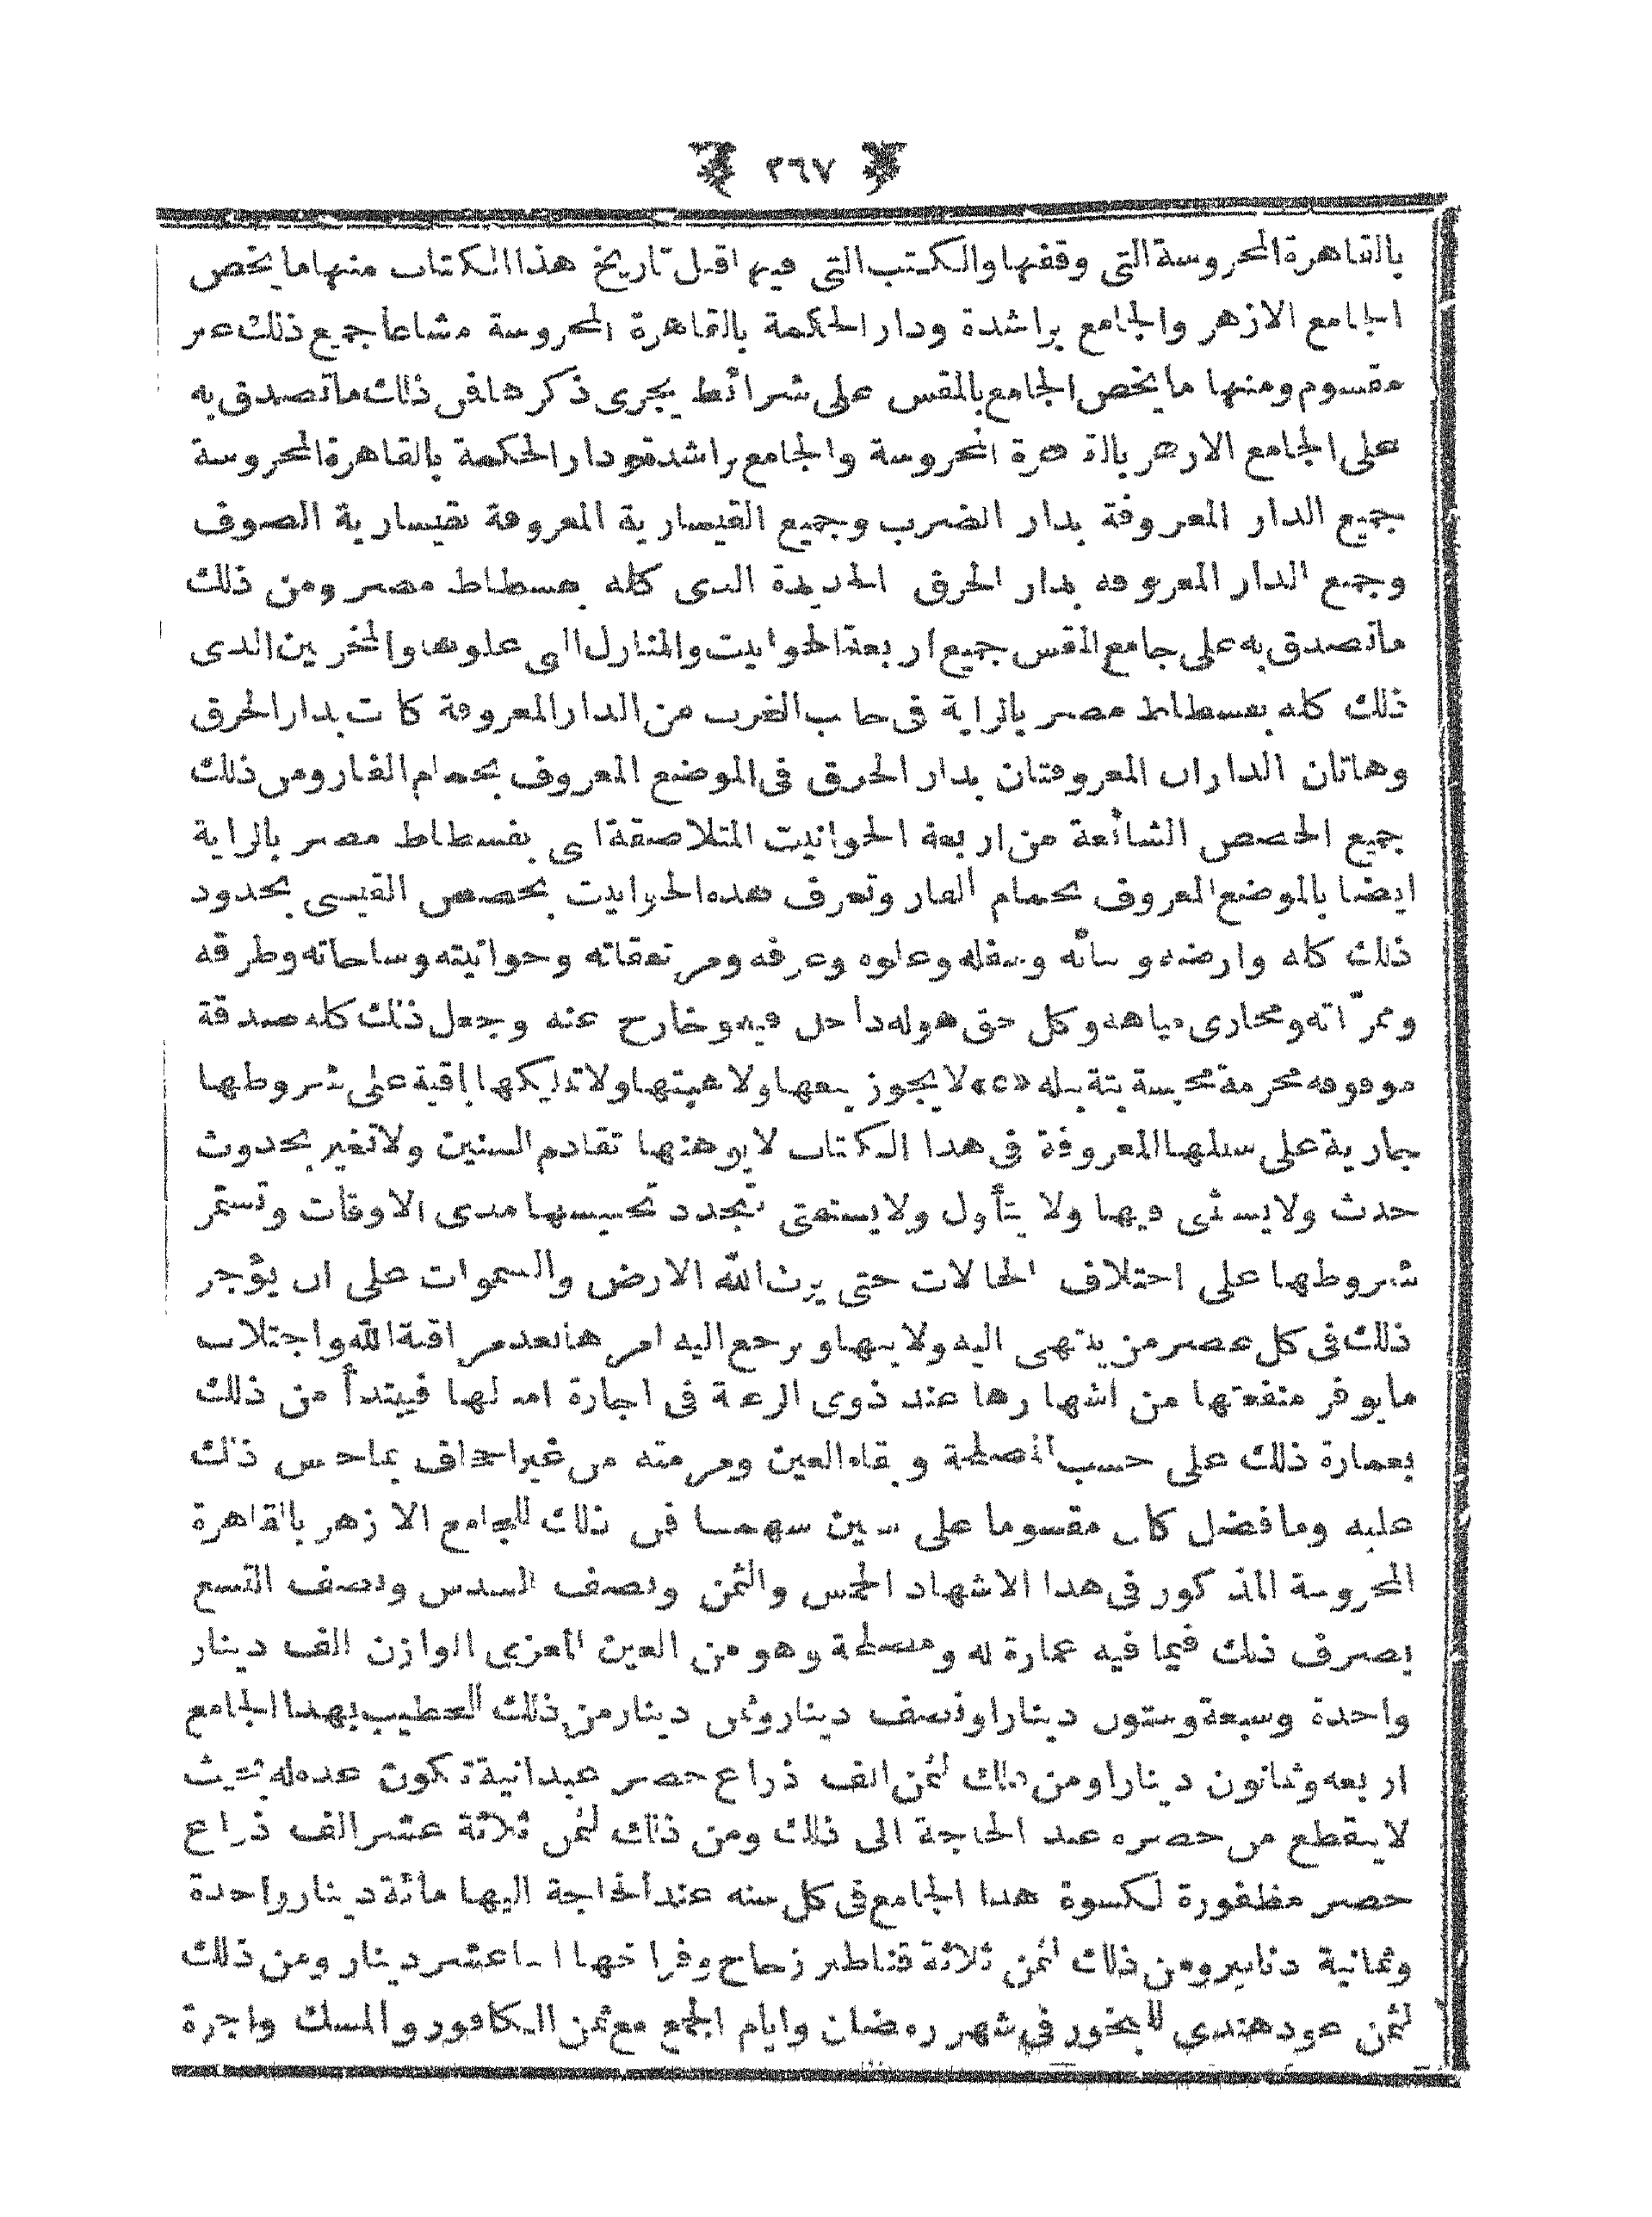 ٢٦٧
بالقاهرة المحروسة التى وقفها والكتب التى فيها قبل تاريخ هذا الكتاب منها ما يخص
الجامع الازهر والجامع براشدة ودار الحكمة بالقاهرة المحروسة مشاعا جميع ذلك غير
مقسوم ومنها ما يخص الجامع بالمقس على شرائط يجرى ذكرها فى ذلك ما تصدق به
على الجامع الازهر بالقاهرة المحروسة والجامع براشدة ودار الحكمة بالقاهرة المحروسة
جميع الدار المعروفة بدار الضرب وجميع القيسارية المعروفة بقيسارية الصوف
وجميع الدار المعروفه بدار الخرق الجديدة الذى كله بفسطاط مصر ومن ذلك
ما تصدق به على جامع المقس جميع اربعة الحوانيت والمنازل التى علوها والمخزنين الذى
ذلك كله بفسطاط مصر بالراية فى جانب الغرب من الدار المعروفة كانت بدار الخرق
وهاتان الداران المعروفتان بدار الخرق فى الموضع المعروف بحمام الفار ومن ذلك
جميع الحصص الشائعة من اربعة الحوانيت المتلاصقة التى بفسطاط مصر بالراية
ايضا بالموضع المعروف بحمام الفار وتعرف هذه الحوانيت بحصص القيسى بحدود
ذلك كله وارضه وبنائه وسفله وعلوه وغرفه ومرتفقاته وحوانيته وساحاته وطرقه
وممرّاته ومجارى مياهه وكل حق هو له داخل فيه وخارج عنه وجعل ذلك كله صدقة
موقوفه محرمة محبسة بتة بتله «٥» لا يجوز بيعها ولا هبتها ولا تمليكها باقية على شروطها
جارية على سبلها المعروفة فى هذا الكتاب لا يوهنها تقادم السنين ولا تغير بحدوث
حدث ولا يستثنى فيها ولا يتأول ولا يستفتى بتجدد تحبيسها مدى الاوقات وتستمر
شروطها على اختلاف الحالات حتى يرث الله الارض والسموات على ان يؤجر
ذلك فى كل عصر من ينتهى اليه ولايتها ويرجع اليه امرها بعد مراقبة الله واجتلاب
ما يوفر منفعتها من اشهارها عند ذوى الرغبة فى اجارة امثالها فيبتدأ من ذلك
بعمارة ذلك على حسب المصلحة وبقاء العين ومرمته من غير اجحاف بما حبس ذلك
عليه وما فضل كان مقسوما على ستين سهما فمن ذلك للجامع الازهر بالقاهرة
المحروسة المذكور فى هذا الاشهاد الخمس والثمن ونصف السدس ونصف التسع
يصرف ذلك فيما فيه عمارة له ومصلحة وهو من العين المعزى الوازن الف دينار
واحدة وسبعة وستون دينارا ونصف دينار وثمن دينار من ذلك للخطيب بهذا الجامع
اربعه وثمانون دينارا ومن ذلك لثمن الف ذراع حصر عبدانية تكون عده له بحيث
لا ينقطع من حصره عند الحاجة الى ذلك ومن ذلك لثمن ثلاثة عشر الف ذراع
حصر مظفورة لكسوة هذا الجامع فى كل سنه عند الحاجة اليها مائة دينار واحدة
وثمانية دنانير ومن ذلك لثمن ثلاثة قناطير زجاج وفراخها اثنا عشر دينار ومن ذلك
لثمن عود هندى للبخور فى شهر رمضان وايام الجمع مع ثمن الكافور والمسك واجرة